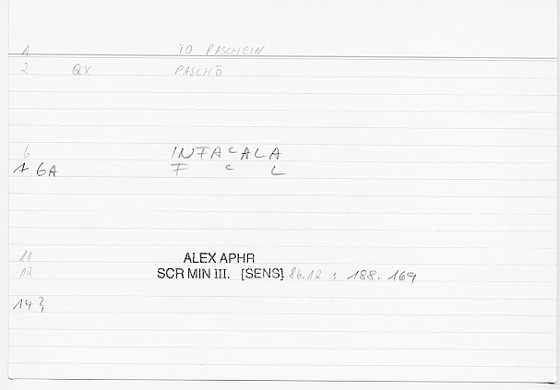 1 TO PASCHEIN
2 QX PASCHŌ
6 INFACALA
1 6A F C L
11 ALEX APHR
12 SCR MIN III. [SENS] 86.12 : 188. 169
14?